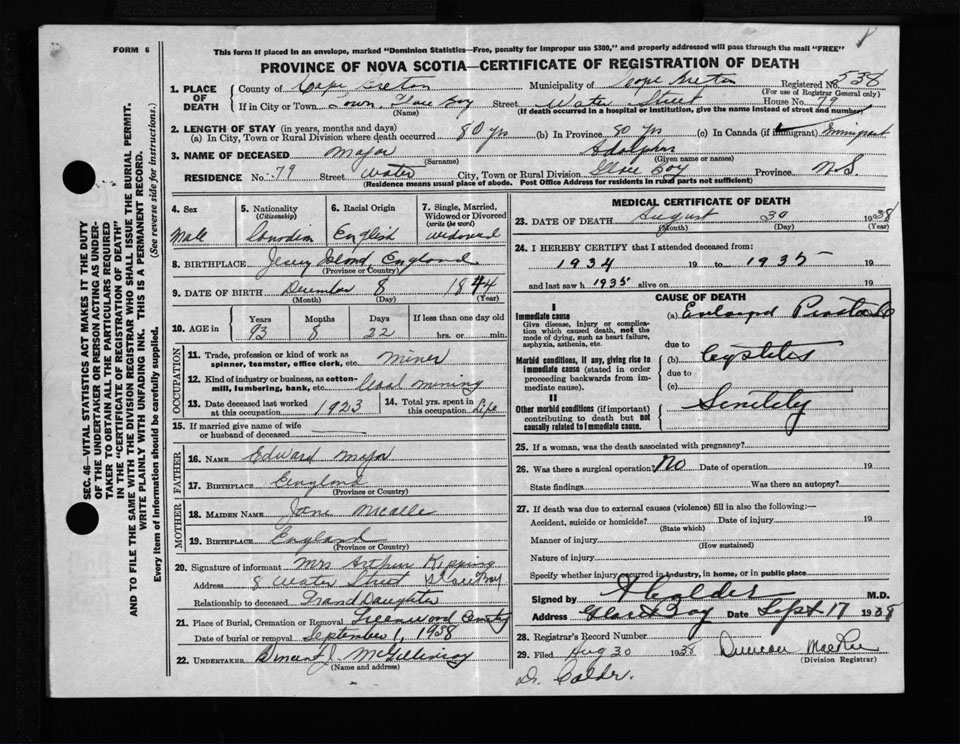 FORM 6
This form if placed in an envelope, marked "Dominion Statistics—Free, penalty for improper use $300," and properly addressed will pass through the mail "FREE"
PROVINCE OF NOVA SCOTIA—CERTIFICATE OF REGISTRATION OF DEATH
SEC. 46—VITAL STATISTICS ACT MAKES IT THE DUTY
OF THE UNDERTAKER OR PERSON ACTING AS UNDER-
TAKER TO OBTAIN ALL THE PARTICULARS REQUIRED
IN THE "CERTIFICATE OF REGISTRATION OF DEATH"
AND TO FILE THE SAME WITH THE DIVISION REGISTRAR WHO SHALL ISSUE THE BURIAL PERMIT.
WRITE PLAINLY WITH UNFADING INK. THIS IS A PERMANENT RECORD.
Every item of Information should be carefully supplied. (See reverse side for instructions.)
1. PLACE OF DEATH
County of Cape Breton Municipality of Cape Breton Registered No. 538
(For use of Registrar General only)
If in City or Town Town Glace Bay Street Water Street House No. 79
(Name) (If death occurred in a hospital or institution, give the name instead of street and number)
2. LENGTH OF STAY (in years, months and days)
(a) In City, Town or Rural Division where death occurred 80 yrs (b) In Province 80 yrs (c) In Canada (if immigrant) Immigrant
3. NAME OF DECEASED Major Adolphus
(Surname) (Given name or names)
RESIDENCE No. 79 Street Water City, Town or Rural Division Glace Bay Province N.S.
(Residence means usual place of abode. Post Office Address for residents in rural parts not sufficient)
4. Sex
Male
5. Nationality
(Citizenship)
Canadian
6. Racial Origin
English
7. Single, Married,
Widowed or Divorced
(write the word)
Widowed
8. BIRTHPLACE Jersey Island, England
(Province or Country)
9. DATE OF BIRTH December 8 1844
(Month) (Day) (Year)
10. AGE in
Years Months Days If less than one day old
93 8 22 hrs. or min.
OCCUPATION
11. Trade, profession or kind of work as
spinner, teamster, office clerk, etc. Miner
12. Kind of industry or business, as cotton-
mill, lumbering, bank, etc. Coal mining
13. Date deceased last worked
at this occupation 1923
14. Total yrs. spent in
this occupation Life
15. If married give name of wife
or husband of deceased
FATHER
16. NAME Edward Major
17. BIRTHPLACE England
(Province or Country)
MOTHER
18. MAIDEN NAME Jane
19. BIRTHPLACE England
(Province or Country)
20. Signature of informant Mrs Arthur Kipping
Address 8 Water Street Glace Bay
Relationship to deceased Grand Daughter
21. Place of Burial, Cremation or Removal Greenwood Cemetery
Date of burial or removal September 1, 1938
22. UNDERTAKER Vincent J. McGillivray
(Name and address)
MEDICAL CERTIFICATE OF DEATH
23. DATE OF DEATH August 30 1938
(Month) (Day) (Year)
24. I HEREBY CERTIFY that I attended deceased from:
1934 19 to 1935 19
and last saw h 1935 alive on 19
CAUSE OF DEATH
I
Immediate cause
Give disease, injury or complica-
tion which caused death, not the
mode of dying, such as heart failure,
asphyxia, asthenia, etc.
(a) Enlarged Prostate
due to
Morbid conditions, if any, giving rise to
immediate cause (stated in order
proceeding backwards from im-
mediate cause).
(b) Cystitis
due to
(c)
II
Other morbid conditions (if important)
contributing to death but not
causally related to immediate cause.
Senility
25. If a woman, was the death associated with pregnancy?
26. Was there a surgical operation: No Date of operation 19
State findings Was there an autopsy?
27. If death was due to external causes (violence) fill in also the following:—
Accident, suicide or homicide? Date of injury 19
(State which)
Manner of injury
(How sustained)
Nature of injury
Specify whether injury occurred in industry, in home, or in public place
Signed by A Calder M.D.
Address Glace Bay Date Sept 17 1938
28. Registrar's Record Number
29. Filed Aug 30 1938 Duncan MacRae
(Division Registrar)
Dr. Calder.